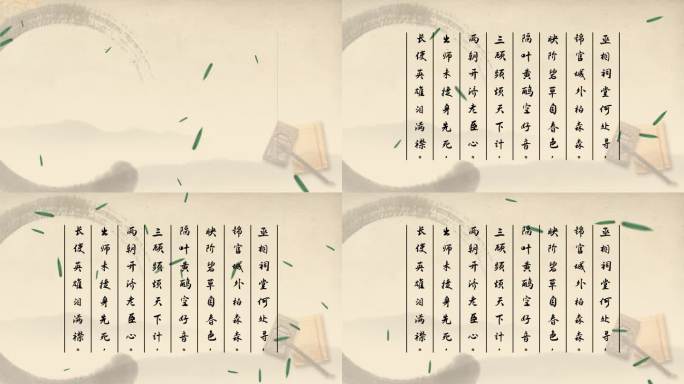 丞相祠堂何处寻，
锦官城外柏森森。
映阶碧草自春色，
隔叶黄鹂空好音。
三顾频烦天下计，
两朝开济老臣心。
出师未捷身先死，
长使英雄泪满襟。
丞相祠堂何处寻，
锦官城外柏森森。
映阶碧草自春色，
隔叶黄鹂空好音。
三顾频烦天下计，
两朝开济老臣心。
出师未捷身先死，
长使英雄泪满襟。
丞相祠堂何处寻，
锦官城外柏森森。
映阶碧草自春色，
隔叶黄鹂空好音。
三顾频烦天下计，
两朝开济老臣心。
出师未捷身先死，
长使英雄泪满襟。